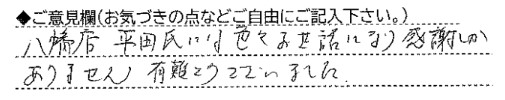 ◆ご意見欄(お気づきの点などご自由にご記入下さい。)
八幡店 平田氏には色々お世話になり感謝しか
ありません 有難とうございました.